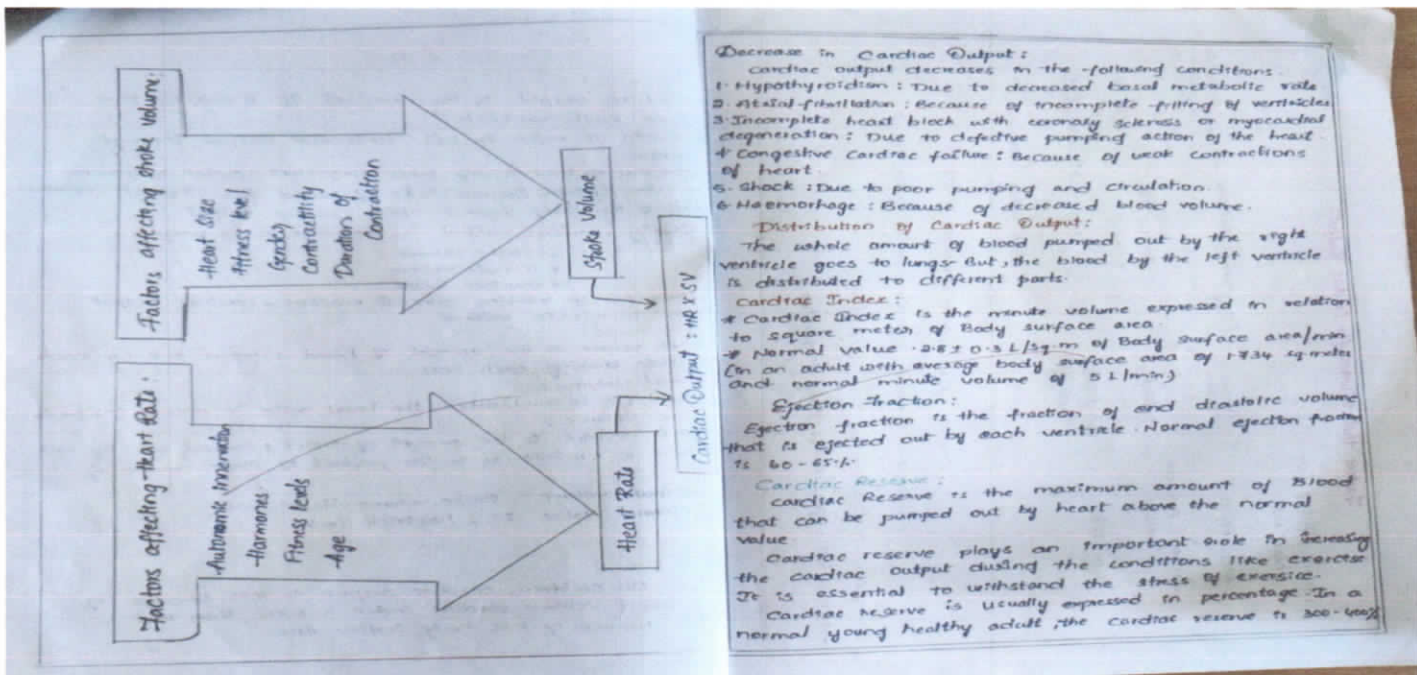 Factors affecting Heart Rate:
Autonomic innervation
Harmones
Fitness levels
Age
Heart Rate
Factors affecting stroke volume:
Heart Size
Fitness level
Gender
Contractility
Duration of
Contraction
Stroke Volume
Cardiac Output : HR X SV
Decrease in Cardiac Output :
Cardiac output decreases in the following conditions.
1. Hypothyroidism : Due to decreased basal metabolic rate
2. Atrial fibrillation : Because of incomplete filling of ventricles
3. Incomplete heart block with coronary sclerosis or myocardial
degeneration : Due to defective pumping action of the heart.
4 Congestive cardiac failure : Because of weak contractions
of heart.
5. Shock : Due to poor pumping and circulation.
6. Haemorhage : Because of decreased blood volume.
Distribution of Cardiac Output :
The whole amount of blood pumped out by the right
ventricle goes to lungs. But, the blood by the left ventricle
is distributed to different parts.
Cardiac Index :
* Cardiac Index is the minute volume expressed in relation
to square meter of Body surface area.
* Normal value . 2.8 ± 0.3 L/sq.m of Body surface area/min
(in an adult with average body surface area of 1.734 sq.meter
and normal minute volume of 5 L/min)
Ejection fraction :
Ejection fraction is the fraction of end diastolic volume
that is ejected out by each ventricle. Normal ejection fraction
is 60 - 65%.
Cardiac Reserve :
Cardiac Reserve is the maximum amount of Blood
that can be pumped out by heart above the normal
value
Cardiac reserve plays an important role in increasing
the cardiac output during the conditions like exercise
It is essential to withstand the stress of exersice.
Cardiac Reserve is usually expressed in percentage. In a
normal young healthy adult, the cardiac reserve is 300-400%